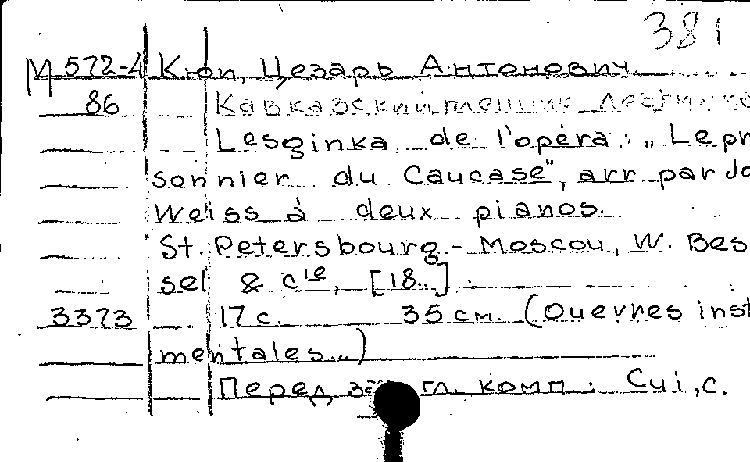 381
М 572-4 Кюи, Цезарь Антонович.
86 Кавказский пленник Лезгинка
Lesginka de l'opéra: „Le pri
sonnier du Caucase", arr par Jo
Weiss à deux pianos.
St. Petersbourg - Moscou, W. Bes
sel & Cie, [18..]
3373 17 с. 35 см. (Ouevres inst
mentales..)
Перед гл. комп: Cui, C.